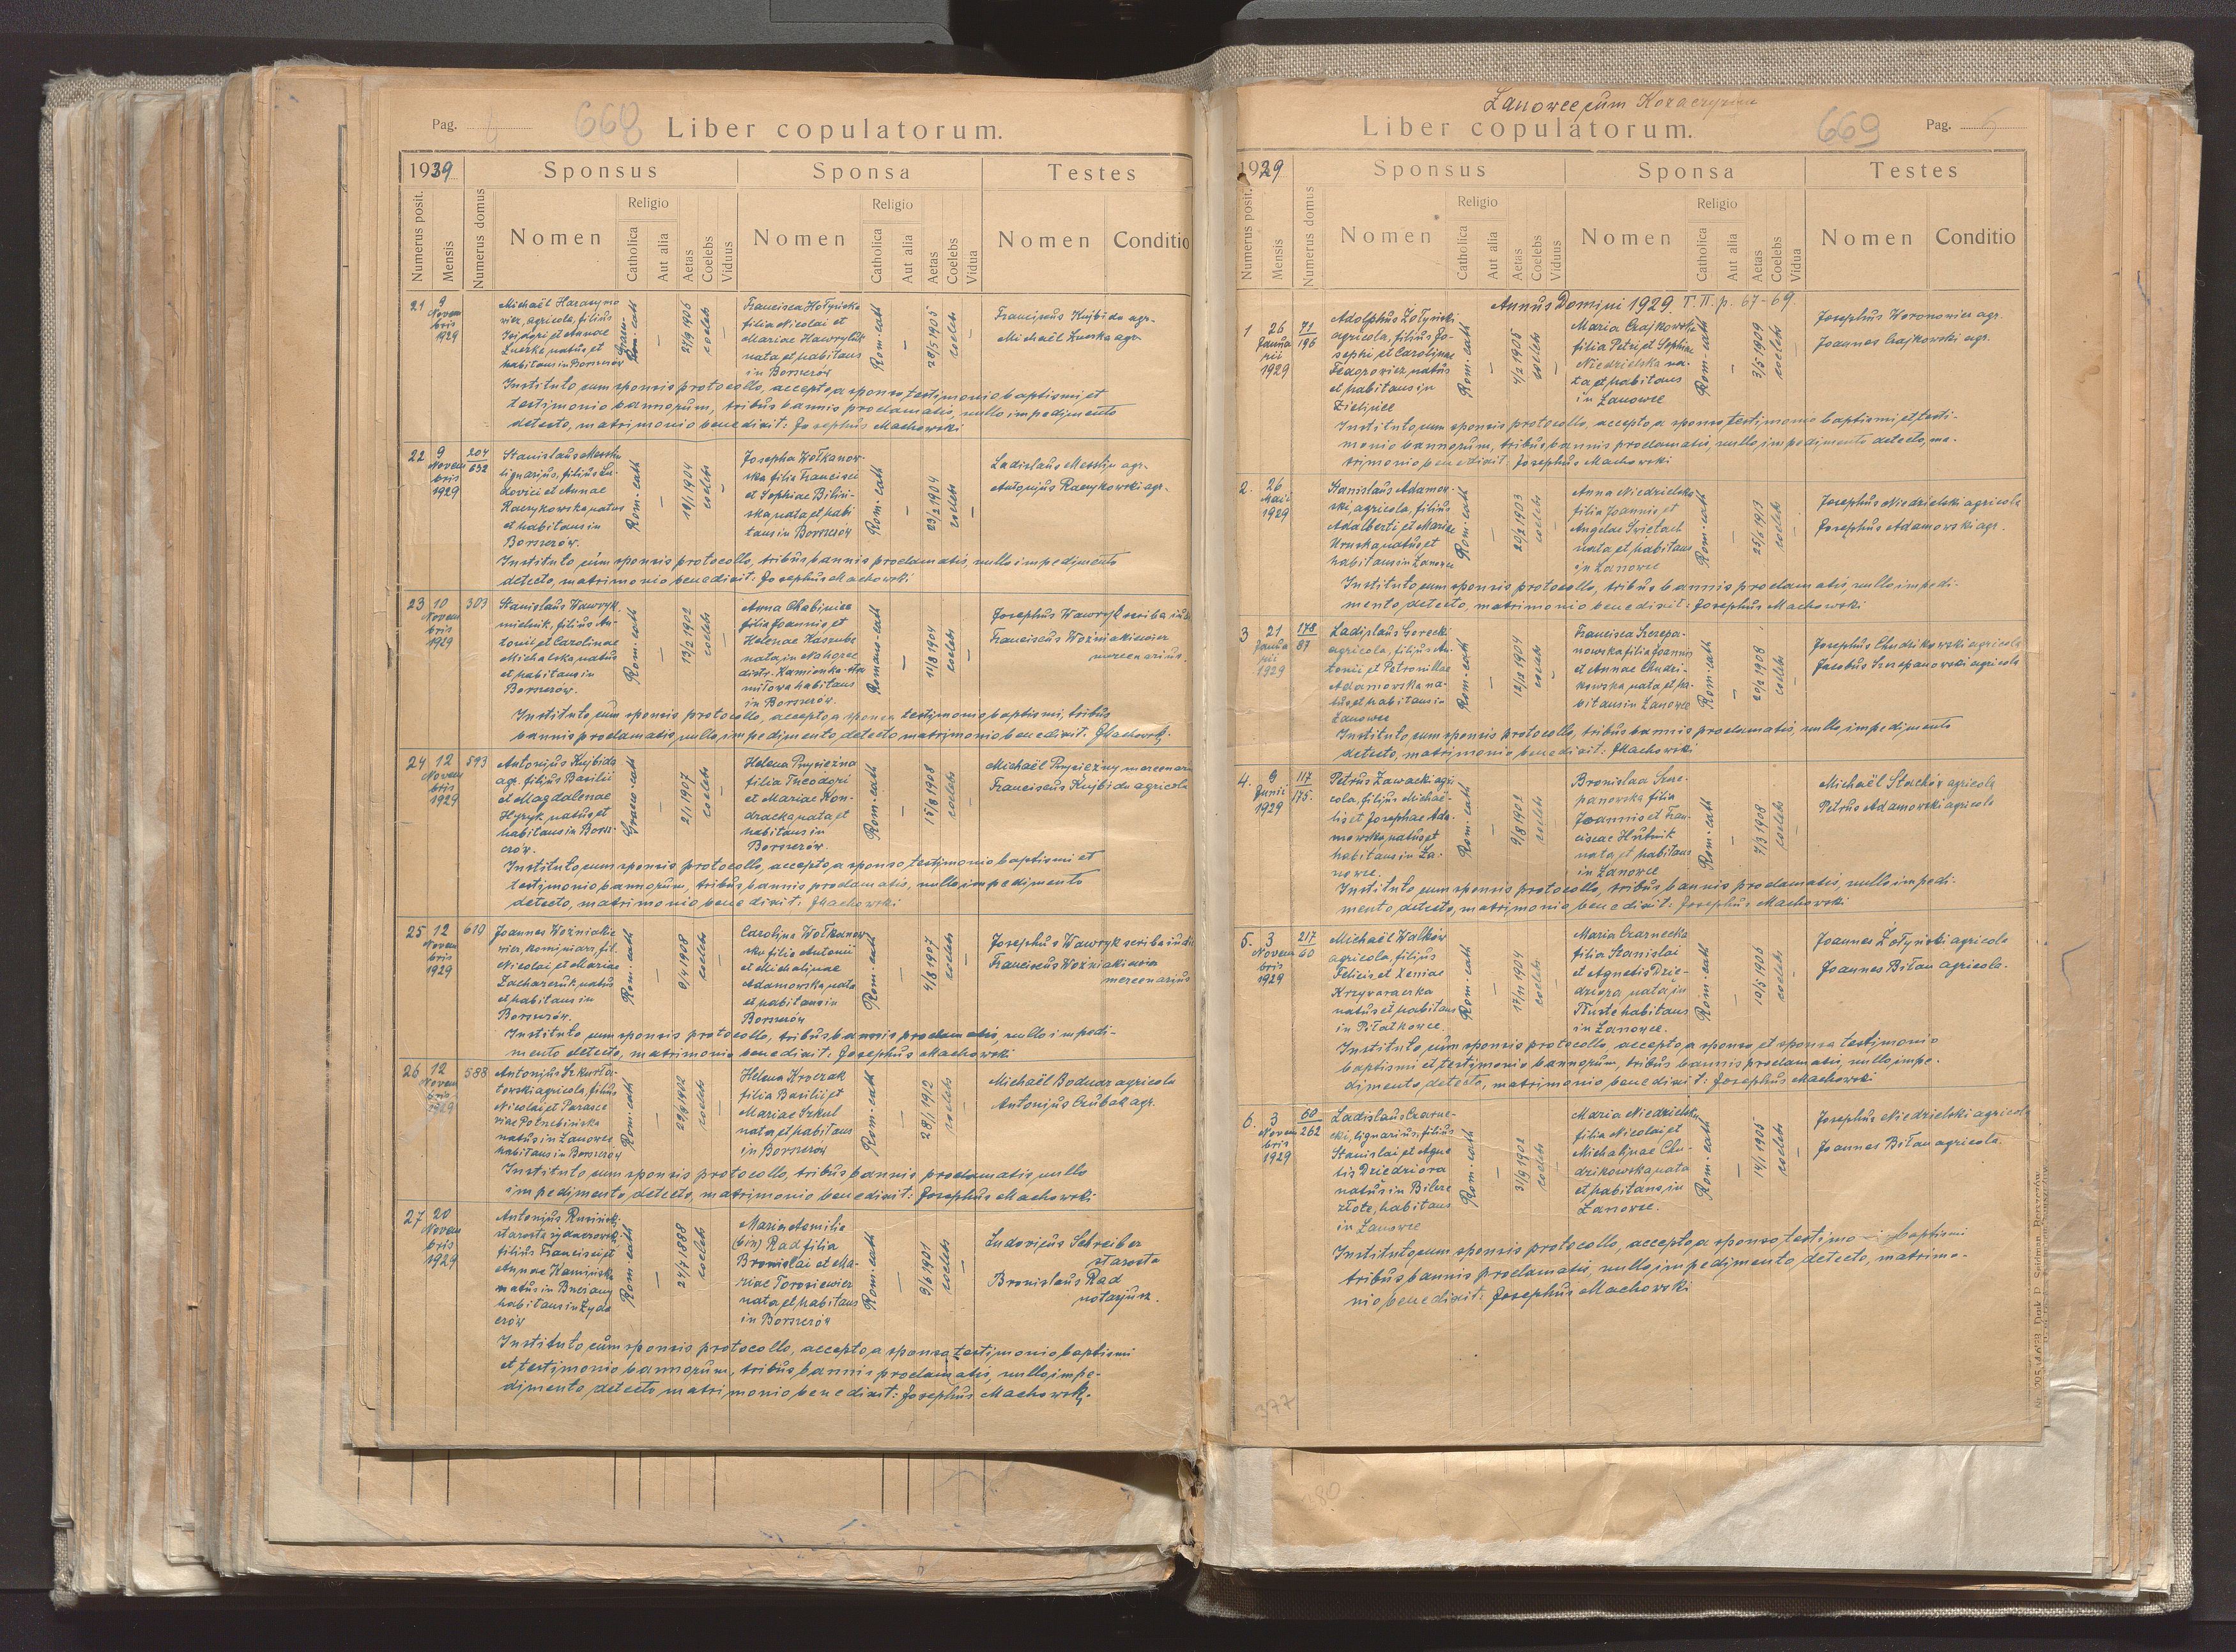 Pag. 6
668
Liber copulatorum.
1929
Sponsus
Sponsa
Testes
Numerus posit.
Mensis
Numerus domus
Nomen
Religio
Catholica
Aut alia
Aetas
Coelebs
Viduus
Nomen
Religio
Catholica
Aut alia
Aetas
Coelebs
Vidua
Nomen
Conditio
21
9
Novem
bris
1929
Michaël Harasymo
wicz, agricola, filius
Isidori et Annae
natus et
habitans in Borszczów
Rom-cath
24/9 1906
coelebs
Francisca Hołyńska
filia Nicolai et
Mariae Hawryluk
nata et habitans
in Borszczów
Rom-cath
28/5 1905
coelebs
Franciscus Kujbida agr.
Michaël agr.
Instituto cum sponsis protocollo, accepto a sponso testimonio baptismi et
testimonio bannorum, tribus bannis proclamatis, nullo impedimento
detecto, matrimonio benedixit: Josephus Machowski
22
9
Novem
bris
1929
204
632
Stanislaus
lignarius, filius Lu-
dovici et Annae
Raczykowska natus
et habitans in
Borszczów.
Rom-cath
19/1 1904
coelebs
Josepha Wołkanow-
ska filia Francisci
et Sophiae Biliń-
ska nata et habi
tans in Borszczów
Rom-cath
23/2 1904
coelebs
Ladislaus agr.
Antonius Raczykowski agr.
Instituto cum sponsis protocollo, tribus bannis proclamatis, nullo impedimento
detecto, matrimonio benedixit: Josephus Machowski
23
10
Novem
bris
1929
303
Stanislaus Wawryk
mielnik, filius An-
tonii et Carolinae
Michalska natus
et habitans in
Borszczów.
Rom-cath
13/2 1902
coelebs
Anna Chabiniec
filia Joannis et
Helenae Kaszuba
nata in Nahorce
distr. Kamionka Stru
miłowa habitans
in Borszczów.
Romano-cath
11/8 1904
coelebs
Josephus Wawryk scriba
Franciscus Woźniakiewicz
mercenarius.
Instituto cum sponsis protocollo, accepto a sponsa testimonio baptismi, tribus
bannis proclamatis, nullo impedimento detecto matrimonio benedixit: JMachowski.
24
12
Novem
bris
1929
593
Antonius Kujbida
agr. filius Basilii
et Magdalenae
Hyryk natus et
habitans in Borsz-
czów.
Graeco-cath
2/1 1907
coelebs
Helena Prysiężna
filia Theodori
et Mariae Kon-
dracka nata et
habitans in
Borszczów.
Rom-cath
15/8 1908
coelebs
Michaël Prysiężny mercenari
Franciscus Kujbida agricola
Instituto cum sponsis protocollo, accepto a sponso testimonio baptismi et
testimonio bannorum, tribus bannis proclamatis, nullo impedimento
detecto, matrimonio benedixit: JMachowski
25
12
Novem
bris
1929
619
Joannes Woźniakie
wicz, kominiarz, fil.
Nicolai et Mariae
Zacharczuk natus
et habitans in
Borszczów.
Rom-cath
9/4 1908
coelebs
Carolina Wołkanow
ska filia Antonii
et Michalinae
Adamowska nata
et habitans in
Borszczów
Rom-cath
4/8 1907
coelebs
Josephus Wawryk scriba
Franciscus Woźniakiewicz
mercenarius
Instituto cum sponsis protocollo, tribus bannis proclamatis, nullo impedi-
mento detecto, matrimonio benedixit: Josephus Machowski
26
12
Novem
bris
1929
588
Antonius Szkurła-
towski agricola, filius
Nicolai et Parasce
viae Potrebińska
natus in Łanowce
habitans in Borszczów
Rom-cath
29/9 1902
coelebs
Helena Kroczak
filia Basilii et
Mariae Szkul
nata et habitans
in Borszczów
Rom-cath
28/1 1912
coelebs
Michaël Bodnar agricola
Antonius Czubak agr.
Instituto cum sponsis protocollo, tribus bannis proclamatis, nullo
impedimento detecto, matrimonio benedixit: Josephus Machowski
27
20
Novem
bris
1929
Antonius Rusiński
starosta żydaczowski
filius Francisci et
Annae Kamińska
natus in Brzeżany
habitans in Żyda
czów
Rom-cath
24/7 1888
coelebs
Maria Aemilia
(bin) Rad filia
Bronislai et Ma-
riae Torosiewicz
nata et habitans
in Borszczów
Rom-cath
9/6 1901
coelebs
Ludovicus Schreiber
starosta
Bronislaus Rad
notarjusz.
Instituto cum sponsis protocollo, accepto a sponsa testimonio baptismi
et testimonio bannorum, tribus bannis proclamatis, nullo impe-
dimento detecto matrimonio benedixit: Josephus Machowski.
Łanowce cum Kozaczyzna
Liber copulatorum.
669
Pag. 5
1929
Sponsus
Sponsa
Testes
Numerus posit.
Mensis
Numerus domus
Nomen
Religio
Catholica
Aut alia
Aetas
Coelebs
Viduus
Nomen
Religio
Catholica
Aut alia
Aetas
Coelebs
Vidua
Nomen
Conditio
Annus Domini 1929. T. II. p. 67-69.
1
26
Janua
rii
1929
71
196
Adolphus Żołyński
agricola, filius Jo-
sephi et Carolinae
Fedorowicz, natus
et habitans in
Zielińce
Rom-cath
4/2 1905
coelebs
Maria Czajkowska
filia Petri et Sophiae
Niedzielska na-
ta et habitans
in Łanowce
Rom-cath
3/5 1909
coelebs
Josephus Woronowicz agr.
Joannes Czajkowski agr.
Instituto cum sponsis protocollo, accepto a sponso testimonio baptismi et testi-
monio bannorum, tribus bannis proclamatis, nullo impedimento detecto, ma-
trimonio benedixit: Josephus Machowski
2.
26
Maii
1929
Stanislaus Adamow-
ski, agricola, filius
Adalberti et Mariae
Kruska natus et
habitans in Łanowce
Rom-cath
20/2 1903
coelebs
Anna Niedzielska
filia Joannis et
Angelae Świetach
nata et habitans
in Łanowce
Rom-cath
25/2 1913
coelebs
Josephus Niedzielski agricola
Josephus Adamowski agr.
Instituto cum sponsis protocollo, tribus bannis proclamatis, nullo impedi-
mento, detecto, matrimonio benedixit: Josephus Machowski
3
21
Janua
rii
1929
178
87
Ladislaus Gorecki
agricola, filius An-
tonii et Petronillae
Adamowska na-
tus et habitans in
Łanowce
Rom-cath
12/2 1904
coelebs
Francisca Szczepa-
nowska filia Joannis
et Annae Chudzi-
kowska nata et ha-
bitans in Łanowce
Rom-cath
20/2 1908
coelebs
Josephus Chudzikowski agricola
Jacobus Szczepanowski agricola
Instituto cum sponsis protocollo, tribus bannis proclamatis, nullo impedimento
detecto, matrimonio benedixit: JMachowski
4.
9
Junii
1929
117
175.
Petrus Zawacki agri
cola, filius Michaë-
lis et Josephae Ada-
mowska, natus et
habitans in Ła-
nowce.
Rom-cath
9/8 1902
coelebs
Bronislaa Szcze-
panowska filia
Joannis et Fran-
ciscae Hutnik
nata et habitans
in Łanowce
Rom-cath
7/3 1908
coelebs
Michaël Stachów agricola
Petrus Adamowski agricola
Instituto cum sponsis protocollo, tribus bannis proclamatis, nullo impedi-
mento detecto, matrimonio benedixit: Josephus Machowski
5.
3
Novem
bris
1929
217
60
Michaël Walków
agricola, filius
Felicis et Xeniae
Krzywaracka
natus et habitans
in Piłatkowce.
Rom-cath
17/11 1904
coelebs
Maria Czarnecka
filia Stanislai
et Agnetis Dzie-
dziora, nata in
Tłuste habitans
in Łanowce.
Rom-cath
10/5 1906
coelebs
Joannes Żołyński agricola
Joannes Biłan agricola.
Instituto cum sponsis protocollo accepto a sponso et sponsa testimonio
baptismi et testimonio bannorum, tribus bannis proclamatis, nullo impe-
dimento detecto, matrimonio benedixit: Josephus Machowski
6.
3
Novem
bris
1929
60
262
Ladislaus Czarne-
cki, lignarius, filius
Stanislai et Agne
tis Dziedziora
natus in Bilcze
złote, habitans
in Łanowce
Rom-cath
31/9 1902
coelebs
Maria Niedzielska
filia Nicolai et
Michalinae Chu-
dzikowska nata
et habitans in
Łanowce.
Rom-cath
14/1 1905
coelebs
Josephus Niedzielski agricola
Joannes Biłan agricola.
Instituto cum sponsis protocollo, accepto a sponso testimo baptismi
tribus bannis proclamatis, nullo impedimento detecto, matrimo-
nio benedixit: Josephus Machowski
377
380